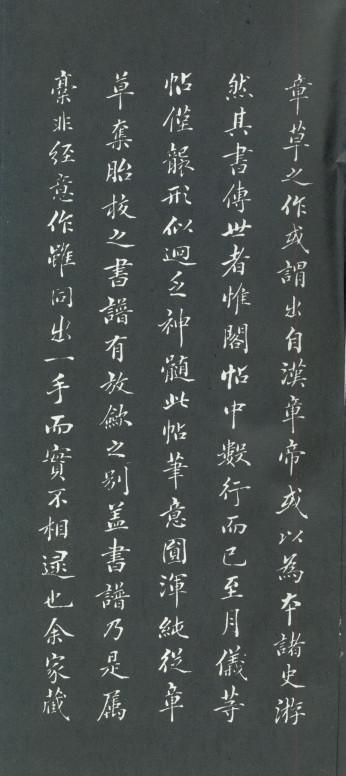 章草之作或謂出自漢章帝或以為本諸史游
然其書傳世者惟閣帖中數行而已至月儀等
帖僅臌形似迥乏神髓此帖筆意圓渾純從章
草奪胎校之書譜有放斂之别蓋書譜乃是属
稾非經意作雖同出一手而實不相逮也余家藏